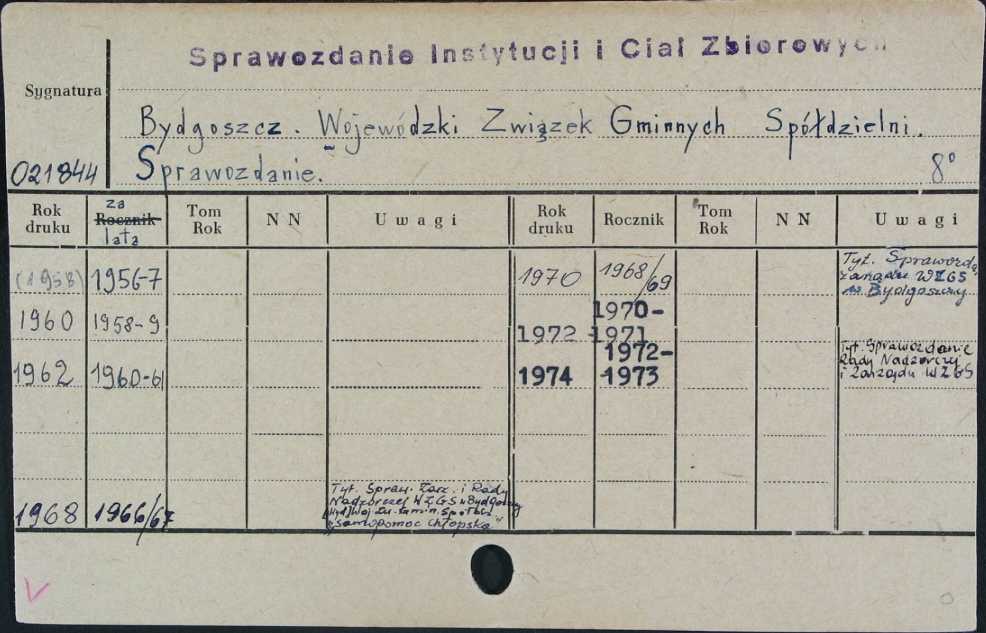 Sprawozdanie Instytucji i Ciał Zbiorowych
Sygnatura
Bydgoszcz. Wojewódzki Związek Gminnych Spółdzielni.
021844 Sprawozdanie. 8°
Rok druku za Rocznik lata Tom Rok NN Uwagi Rok druku Rocznik Tom Rok NN Uwagi
(1958) 1956-7 1970 1968/69 Tyt. Sprawozda.
Zarządu WZGS
w Bydgoszczy
1960 1958-9 1972 1970-1971
1962 1960-61 1974 1972-1973 Tyt. Sprawozdanie
Rady Nadzorczej
i Zarządu WZGS
1968 1966/67 Tyt. Spraw. Zarz. i Rady
Nadzorczej WZGS w Bydgoszczy
Woj. Zw. Gmin. Spółdz.
"Samopomoc Chłopska"